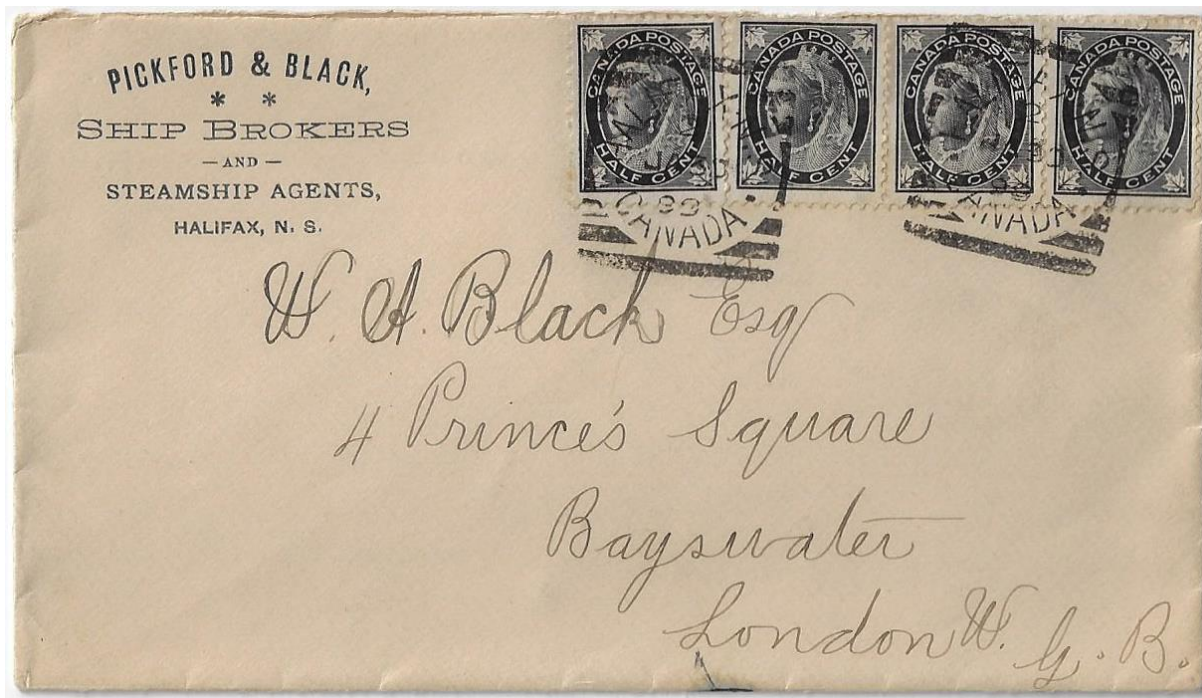 PICKFORD & BLACK,
* *
SHIP BROKERS
— AND —
STEAMSHIP AGENTS,
HALIFAX, N. S.
CANADA POSTAGE
HALF CENT
CANADA POSTAGE
HALF CENT
CANADA POSTAGE
HALF CENT
CANADA POSTAGE
HALF CENT
99
CANADA
CANADA
W. A. Black Esq
4 Prince's Square
Bayswater
London W. G. B.